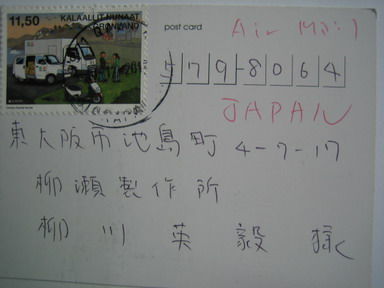 11,50 KALAALLIT NUNAAT
GRØNLAND
post card
Air Mail
579-8064
JAPAN
東大阪市池島町 4-7-17
柳瀬製作所
柳川 英毅 様